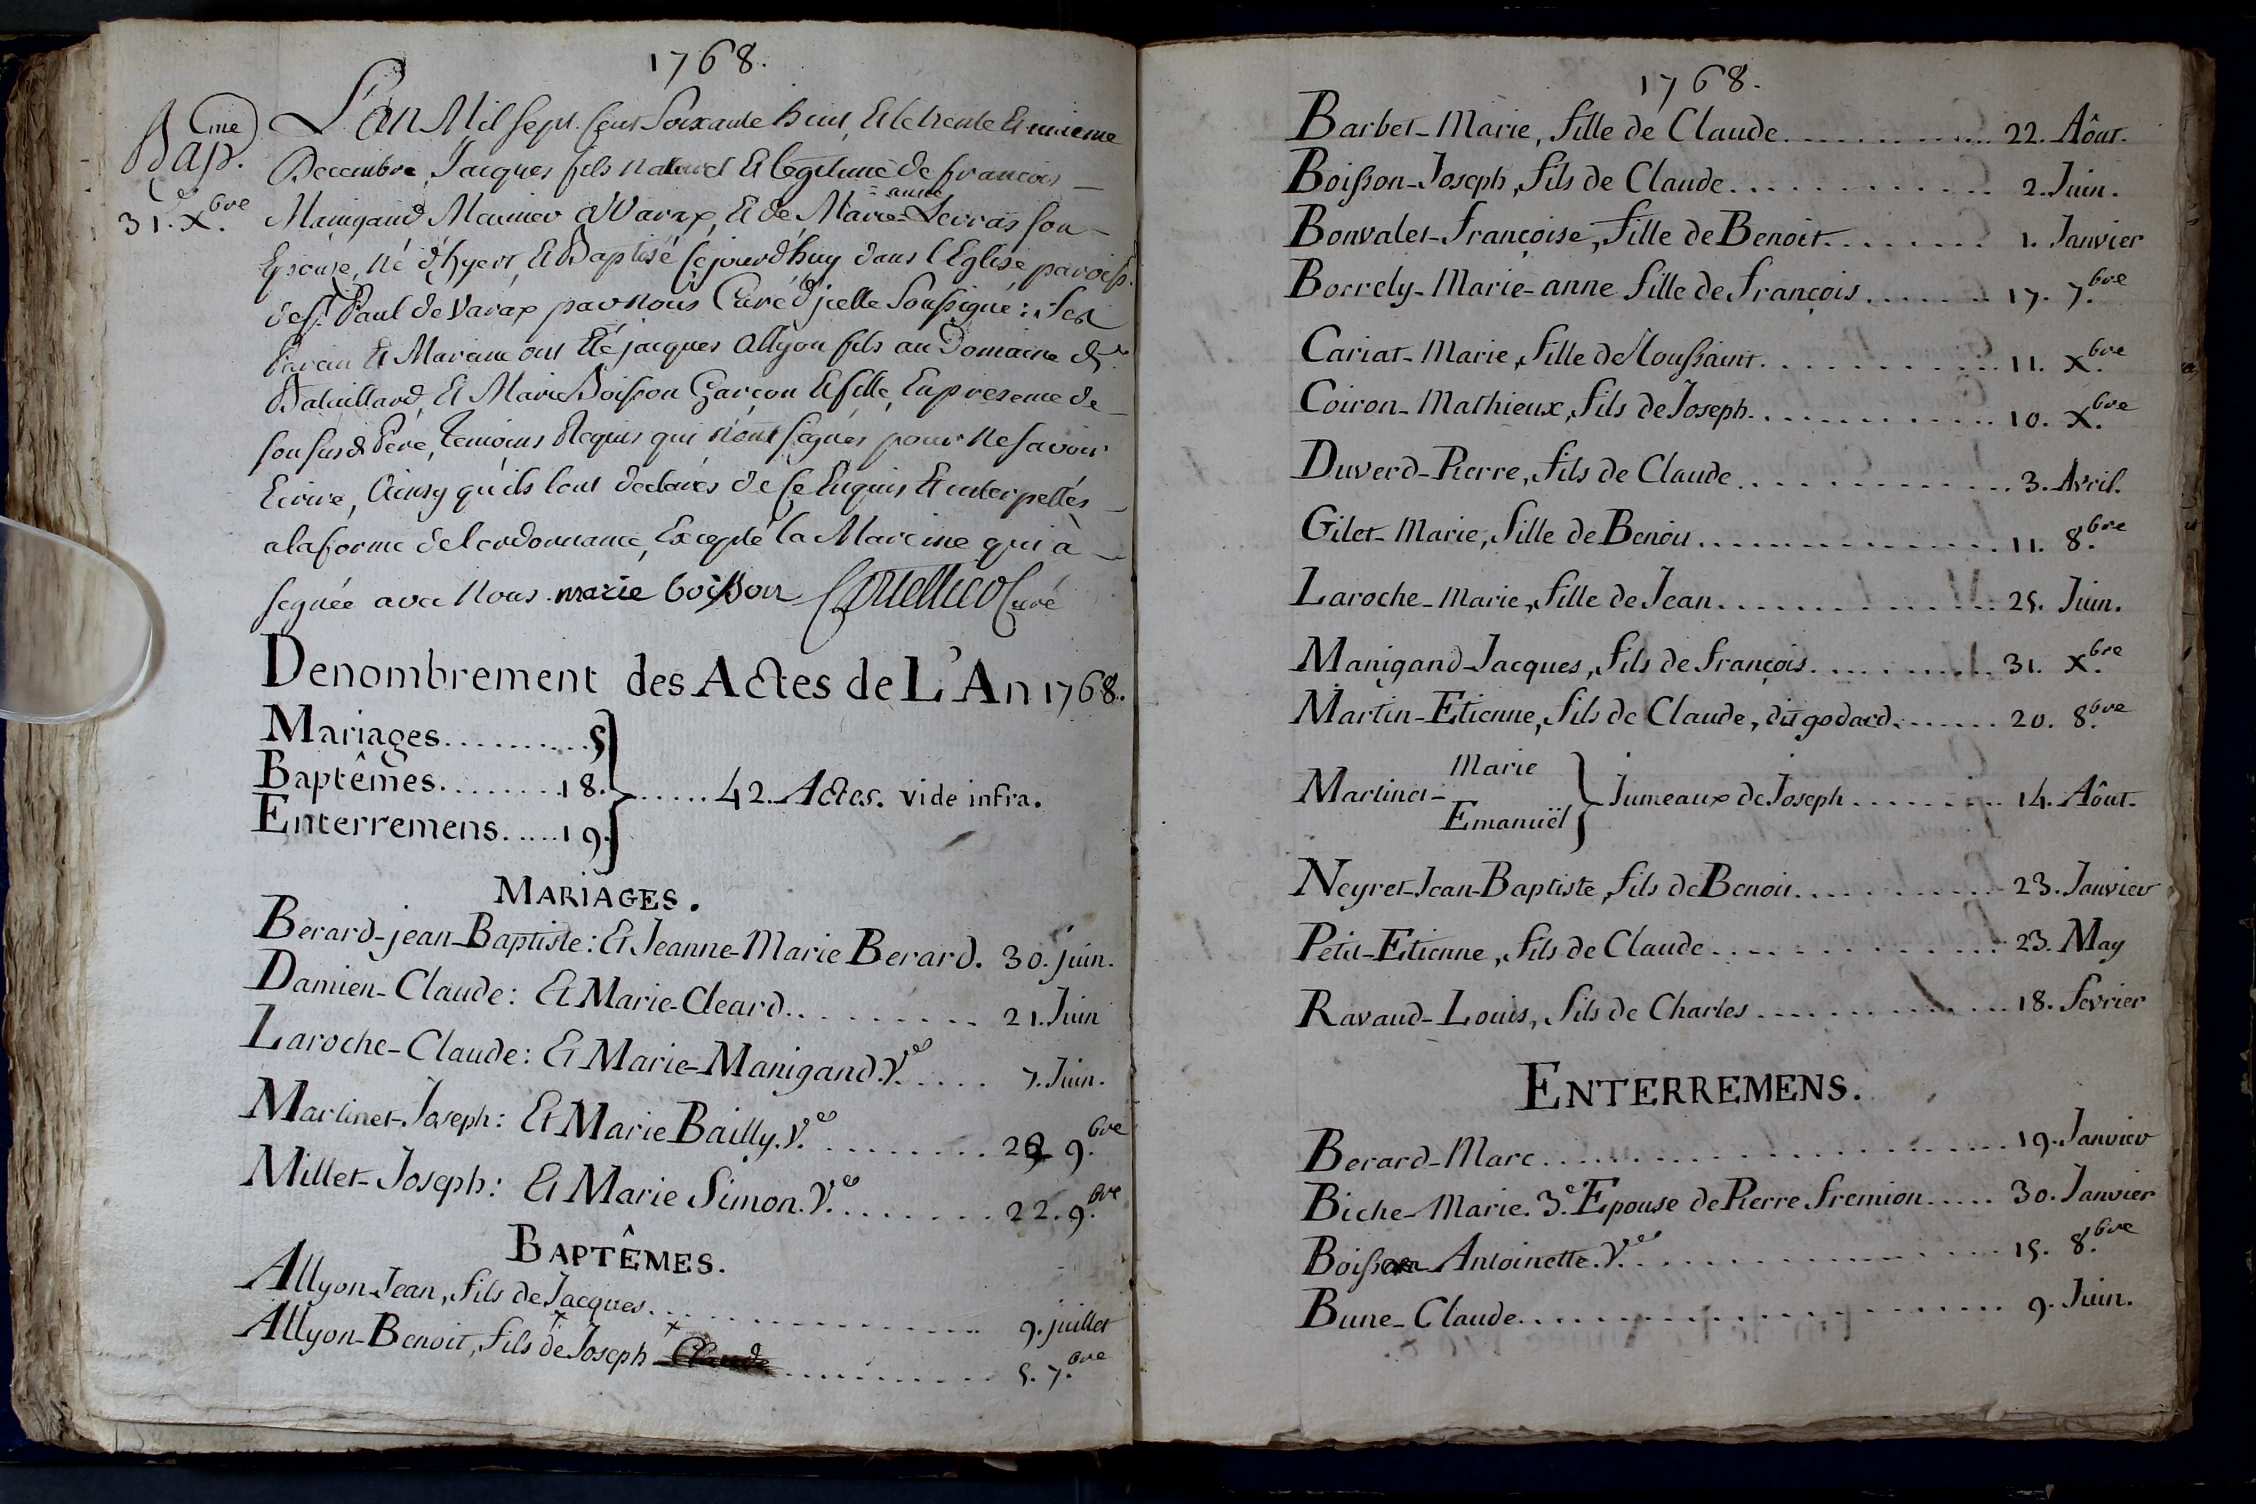 1768.
Bap.me
31. Xbre
L'an Mil sept cent soixante huit, Et le trente Et unieme
Decembre, Jacques fils naturel Et legitime de francois
anne
Manigand Meunier a Varax, Et de Marie Levras son
Epouse, né d'hyert, Et Baptisé cejourdhuy dans l'Eglise paroiss.
de st. Paul de Varax par nous Curé d'jcelle soussigné: Ses
Parain Et Maraine ont Eté jacques Allyon fils au Domaine de
Bataillard, Et Marie Boisson Garçon Et fille, En presence de
son susd. Pere, temoins Requis qui n'ont signés pour ne savoir
Ecrire, Ainsy qu'ils l'ont declarés de ce Enquis Et interpellés
a la forme de lordonnance, Excepté la Mareine qui à
signée avec Nous. marie boisson Curé
Denombrement des Actes de L'An 1768.
Mariages..........5
Baptêmes........18. ......42. Actes. vide infra.
Enterremens......19.
MARIAGES.
Berard-jean-Baptiste: Et Jeanne-Marie Berard. 30. juin.
Damien-Claude: Et Marie-Cleard......... 21. Juin
Laroche-Claude: Et Marie-Manigand. Ve...... 7. Juin.
Martinet-Joseph: Et Marie Bailly. Ve......... 9.bre
Millet-Joseph: Et Marie Simon. Ve......... 22. 9.bre
BAPTÊMES.
Allyon-Jean, fils de Jacques.................. 9. juillet
Allyon-Benoit, fils de Joseph ............ 5. 7.bre
1768.
Barbet-Marie, fille de Claude............... 22. Aôut.
Boisson-Joseph, fils de Claude............. 2. Juin.
Bonvalet-Françoise, fille de Benoit......... 1. Janvier
Borrely-Marie-anne fille de françois....... 17. 7.bre
Cariat-Marie, fille de Toussaint............ 11. X.bre
Coiron-Mathieux, fils de Joseph............. 10. X.bre
Duverd-Pierre, fils de Claude............... 3. Avril.
Gilet-Marie, fille de Benoit................ 11. 8.bre
Laroche-Marie, fille de Jean................ 25. Juin.
Manigand-Jacques, fils de françois.......... 31. X.bre
Martin-Etienne, fils de Claude, dit godard....... 20. 8.bre
Marie
Martinet- Jumeaux de Joseph......... 14. Aôut.
Emanuël
Neyret-Jean-Baptiste, fils de Benoit........... 23. Janvier
Petit-Etienne, fils de Claude............... 23. May
Ravaud-Louis, fils de Charles.............. 18. fevrier
ENTERREMENS.
Berard-Marc........................ 19. Janvier
Biche-Marie. 3.e Epouse de Pierre fremion..... 30. Janvier
Boisson-Antoinette. Ve................. 15. 8.bre
Bune-Claude........................ 9. Juin.